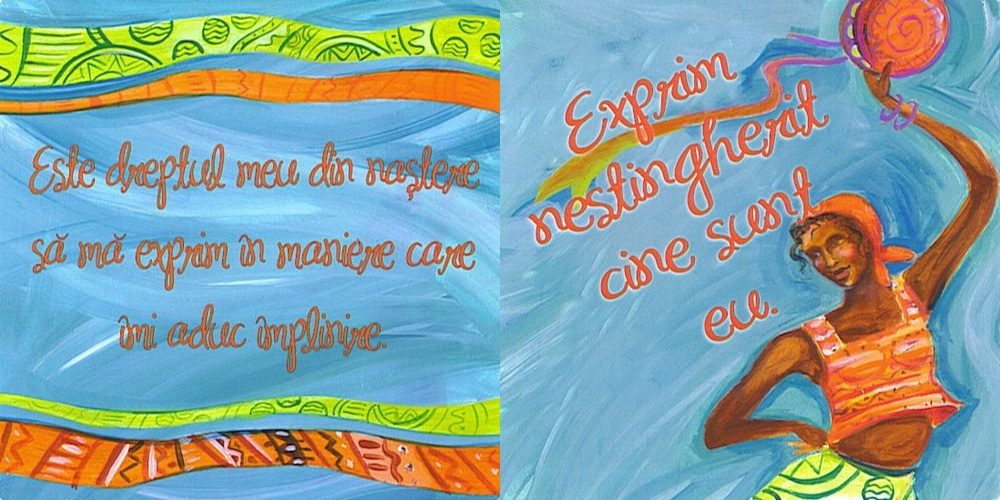 Este dreptul meu din naștere
să mă exprim în maniere care
îmi aduc împlinire.
Exprim
nestingherit
cine sunt
eu.